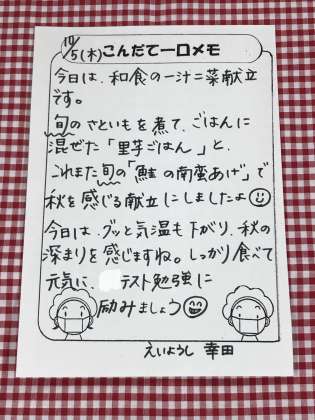 10/5(木)こんだて一口メモ
今日は、和食の一汁二菜献立
です。
旬のさといもを煮て、ごはんに
混ぜた「里芋ごはん」と、
これまた旬の「鮭の南蛮あげ」で
秋を感じる献立にしましたよ
今日は、グッと気温も下がり、秋の
深まりを感じますね。しっかり食べて
元気に、テスト勉強に
励みましょう
えいようし 幸田